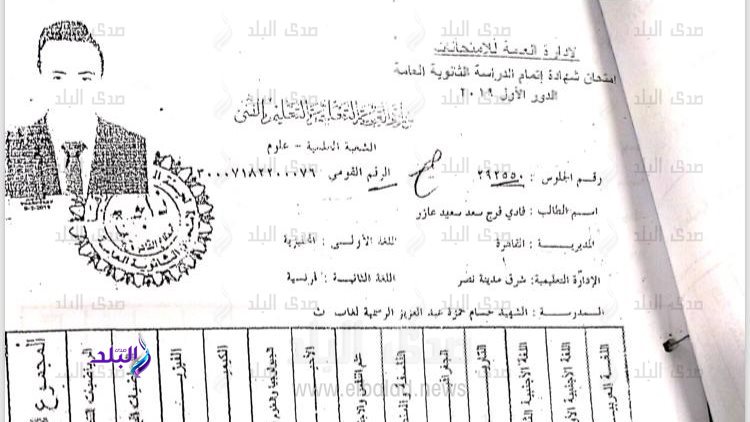 لإدارة العامة للامتحانات
امتحان شهادة إتمام الدراسة الثانوية العامة
الدور الأول ٢٠١٩
الشعبة العلمية - علوم
رقم الجلوس : ٢٩٢٥٥٠
الرقم القومى ٣٠٠٠٧١٨٢٢٠٠٠٧٦
اسم الطالب : فادي فرج سعد سعيد عازر
المديرية : القاهرة
اللغة الأولى : انجليزية
الإدارة التعليمية : شرق مدينة نصر
اللغة الثانية : فرنسية
المدرسة : الشهيد حسام حمزة عبد العزيز الرسمية لغات ث
اللغة العربية
اللغة الأجنبية الأو
اللغة الأجنبية الث
التاريخ
الجغراف
علم النفس والاجت
الأحي
الكيمي
الفيزي
المجموع
صدى البلد
www.elbalad.news